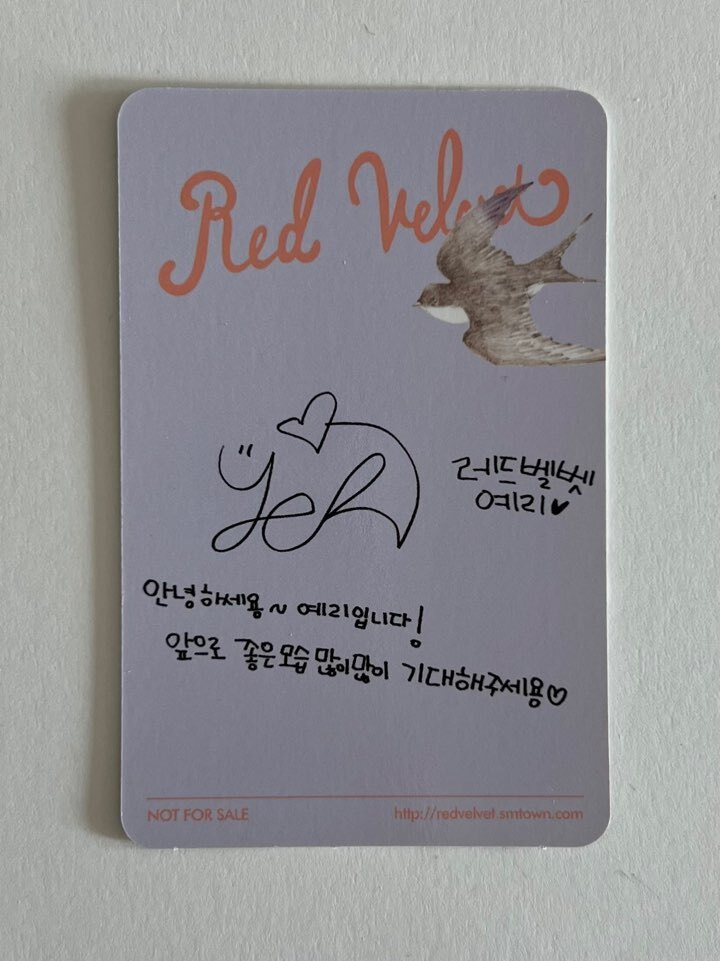 Red Velvet
yeri
레드벨벳
예리♥
안녕하세용~ 예리입니다!
앞으로 좋은모습 많이많이 기대해주세용♡
NOT FOR SALE
http://redvelvet.smtown.com